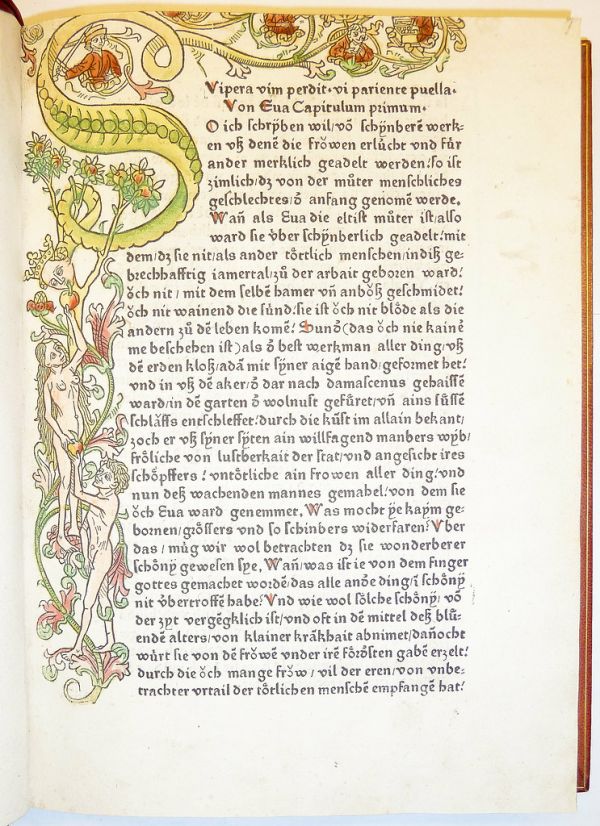 Vipera vim perdit · vi pariente puella.
Von Eua Capitulum primum·
O ich schrÿben wil/võ schÿnberē werk-
en vß denē die frŏwen erlücht vnd für
ander merklich geadelt werden! so ist
zimlich/dz von der můter menschliches
geschlechtes/ð anfang genomē werde.
Wañ als Eua die eltist můter ist/also
ward sie v̊ber schÿnberlich geadelt! mit
dem/dz sie nit/als ander tŏrtlich menschen/in diß ge-
brechhafftig iamertal/zů der arbait geboren ward!
ŏch nit/mit dem selbē hamer vñ anbŏß geschmidet!
ŏch nit wainend die sünd! sie ist ŏch nit blŏde als die
andern zů dē leben komē! Sunð(das ŏch nie kainē
me beschehen ist)als ð best werkman aller ding/vß
dē erden kloß/adā mit sÿner aigē hand/geformet het!
vnd in vß dē aker/ð dar nach damascenus gehaissē
ward/in dē garten ð wolnust gefůret/vñ ains süssē
schlǎffs entschleffet! durch die kůst im allain bekant/
zoch er vß sÿner sÿten ain willsagend manbers wÿb/
frŏliche von lustberkait der stat/vnd angesicht ires
schŏpffers! vntŏtliche ain frowen aller ding! vnd
nun deß wachenden mannes gemahel! von dem sie
ŏch Eua ward genemmet. Was mocht ÿe kaÿm ge-
bornen/grŏssers vnd so schinbers widerfaren! V̊ber
das/můg wir wol betrachten dz sie wonderberer
schŏnÿ gewesen sÿe. Wañ/was ist ie von dem finger
gottes gemachet wordē/das alle anðe ding/ī schŏnÿ
nit v̊bertroffē habe! Vnd wie wol sŏlche schŏnÿ/võ
der zÿt vergēgklich ist/vnd oft in dē mittel deß blů-
endē alters/von klainer krākhait abnimet/dañocht
wůrt sie von dē frŏwē vnder irē fŏrŏsten gabē erzelt!
durch die ŏch mange frŏw/vil der eren/von vnbe-
trachter vrtail der tŏrtlichen menschē empfangē hat!